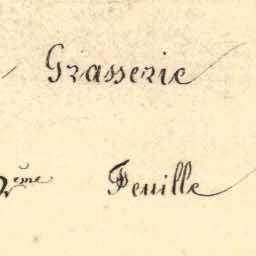 Grasserie
2ème Feuille